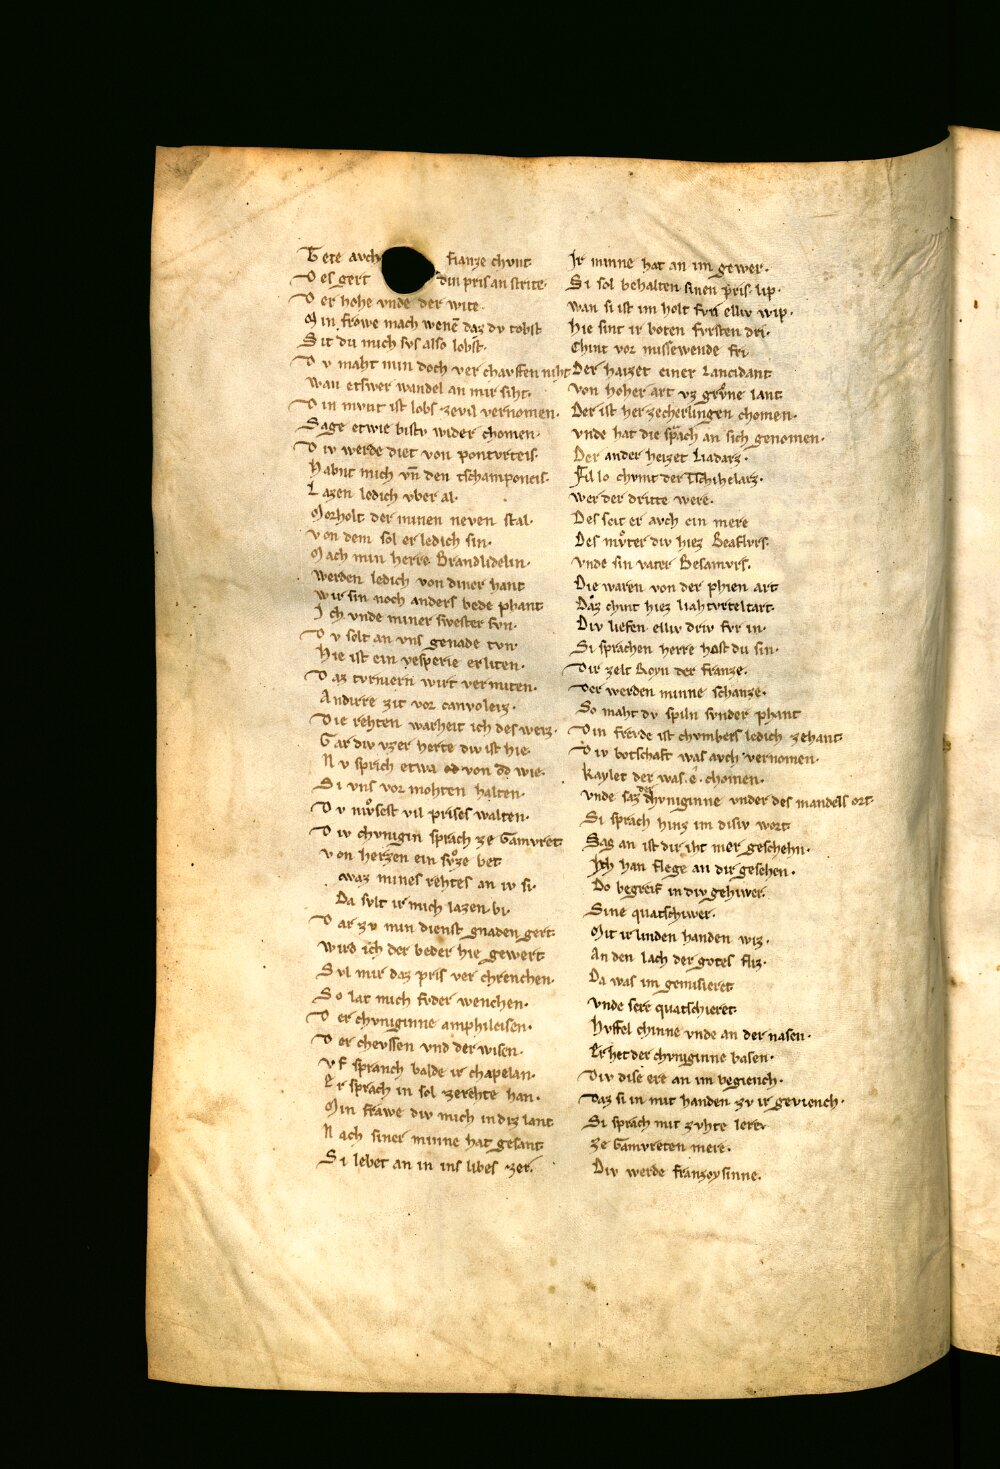 Tete avch fianze chvnt
D es gert din pris an strite.
D er hohe vnde der wite.
M in frowe mach wenen daz dv tobst
S it du mich svs also lobst.
D v maht min doch ver chavffen niht
Wan etswer wandel an mir siht.
D in mvnt ist lobs zevil vernomen.
Sage etwie bistv wider chomen.
D iv werde diet von pontvrteis.
Habnt mich vn̄ den tschamponeis.
L azen ledich vber al.
Morholt der minen neven stal.
Von dem sol er ledich sin.
Mach min herre Brandlidelin.
Werden ledich von diner hant
Wir sin noch anders bede phant
I ch vnde miner swester svn.
D v solt an vns genade tvn.
Hie ist ein vesperie erliten.
D az tvrniern wirt vermiten.
Andirre zit vor canvoleiz.
Die rehten warheit ich des weiz.
Gar div vzer herte div ist hie.
N v sprich etwa von dv wie.
Si vns vor mohten halten.
D v mvͦsest vil prises walten.
D iv chvnigin sprach ze Gamvret
Von herzen ein svͦze bet
waz mines rehtes an iv si.
Da svlt ir mich lazen bi.
D ar zv min dienst gnaden gert.
Wird ich der beder hie gewert
Sul mir daz pris ver chrenchen.
So lat mich fvder wenchen.
D er chvniginne amphleisen.
D er chevssen vnd der wisen.
Vf spranch balde ir chapelan.
Er sprach in sol zerehte han.
Min frawe div mich in diz lant
Nach siner minne hat gesant
Si lebet an in ins libes zer.
Ir minne hat an im gewer.
Si sol behalten sinen pris lip.
Wan si ist im holt fvr elliv wip.
Hie sint ir boten fvrsten dri.
Chint vor missewende fri
Der haizet einer Lancidant
Von hoher art vz grvͦne lant
Der ist her zecherlingen chomen.
Vnde hat die sprach an sich genomen.
Der ander heizet Liadarz.
Fillo chvnt der Tschihelarz.
Wer der dritte were.
Des seit er avch ein mere
Des mvͦter div hiez Beaflvrs.
Vnde sin vater Besamvrs.
Die waren von der phien art
Daz chint hiez liahtvrteltart.
Div liefen elliv driv fvr in.
Si sprachen herre hast du sin.
Dir zelt Royn der franze.
Der werden minne schanze.
So maht dv spiln svnder phant
Din frevde ist chvmbers ledich zehant.
D iv botschaft was avch vernomen.
Kaylet der was .e. chomen.
Vnde saz der chvniginne vnder des mandels ort.
Si sprach hinz im disiv wort
Sag an ist dir iht mer geschehn.
Ich han slege an dir gesehen.
Do begreif in div gehiwer.
Sine quatschiwer.
Mit ir linden handen wiz.
An den lach der gotes fliz.
Da was im gemisieret
Vnde sere quatschieret.
Hvffel chinne vnde an der nasen.
Er het der chvniginne basen.
Div dise ere an im begiench.
Daz si in mit handen zv ir geviench.
Si sprach mit zvhte lere
Ze Gamvreten mere.
Div werde franzoysinne.